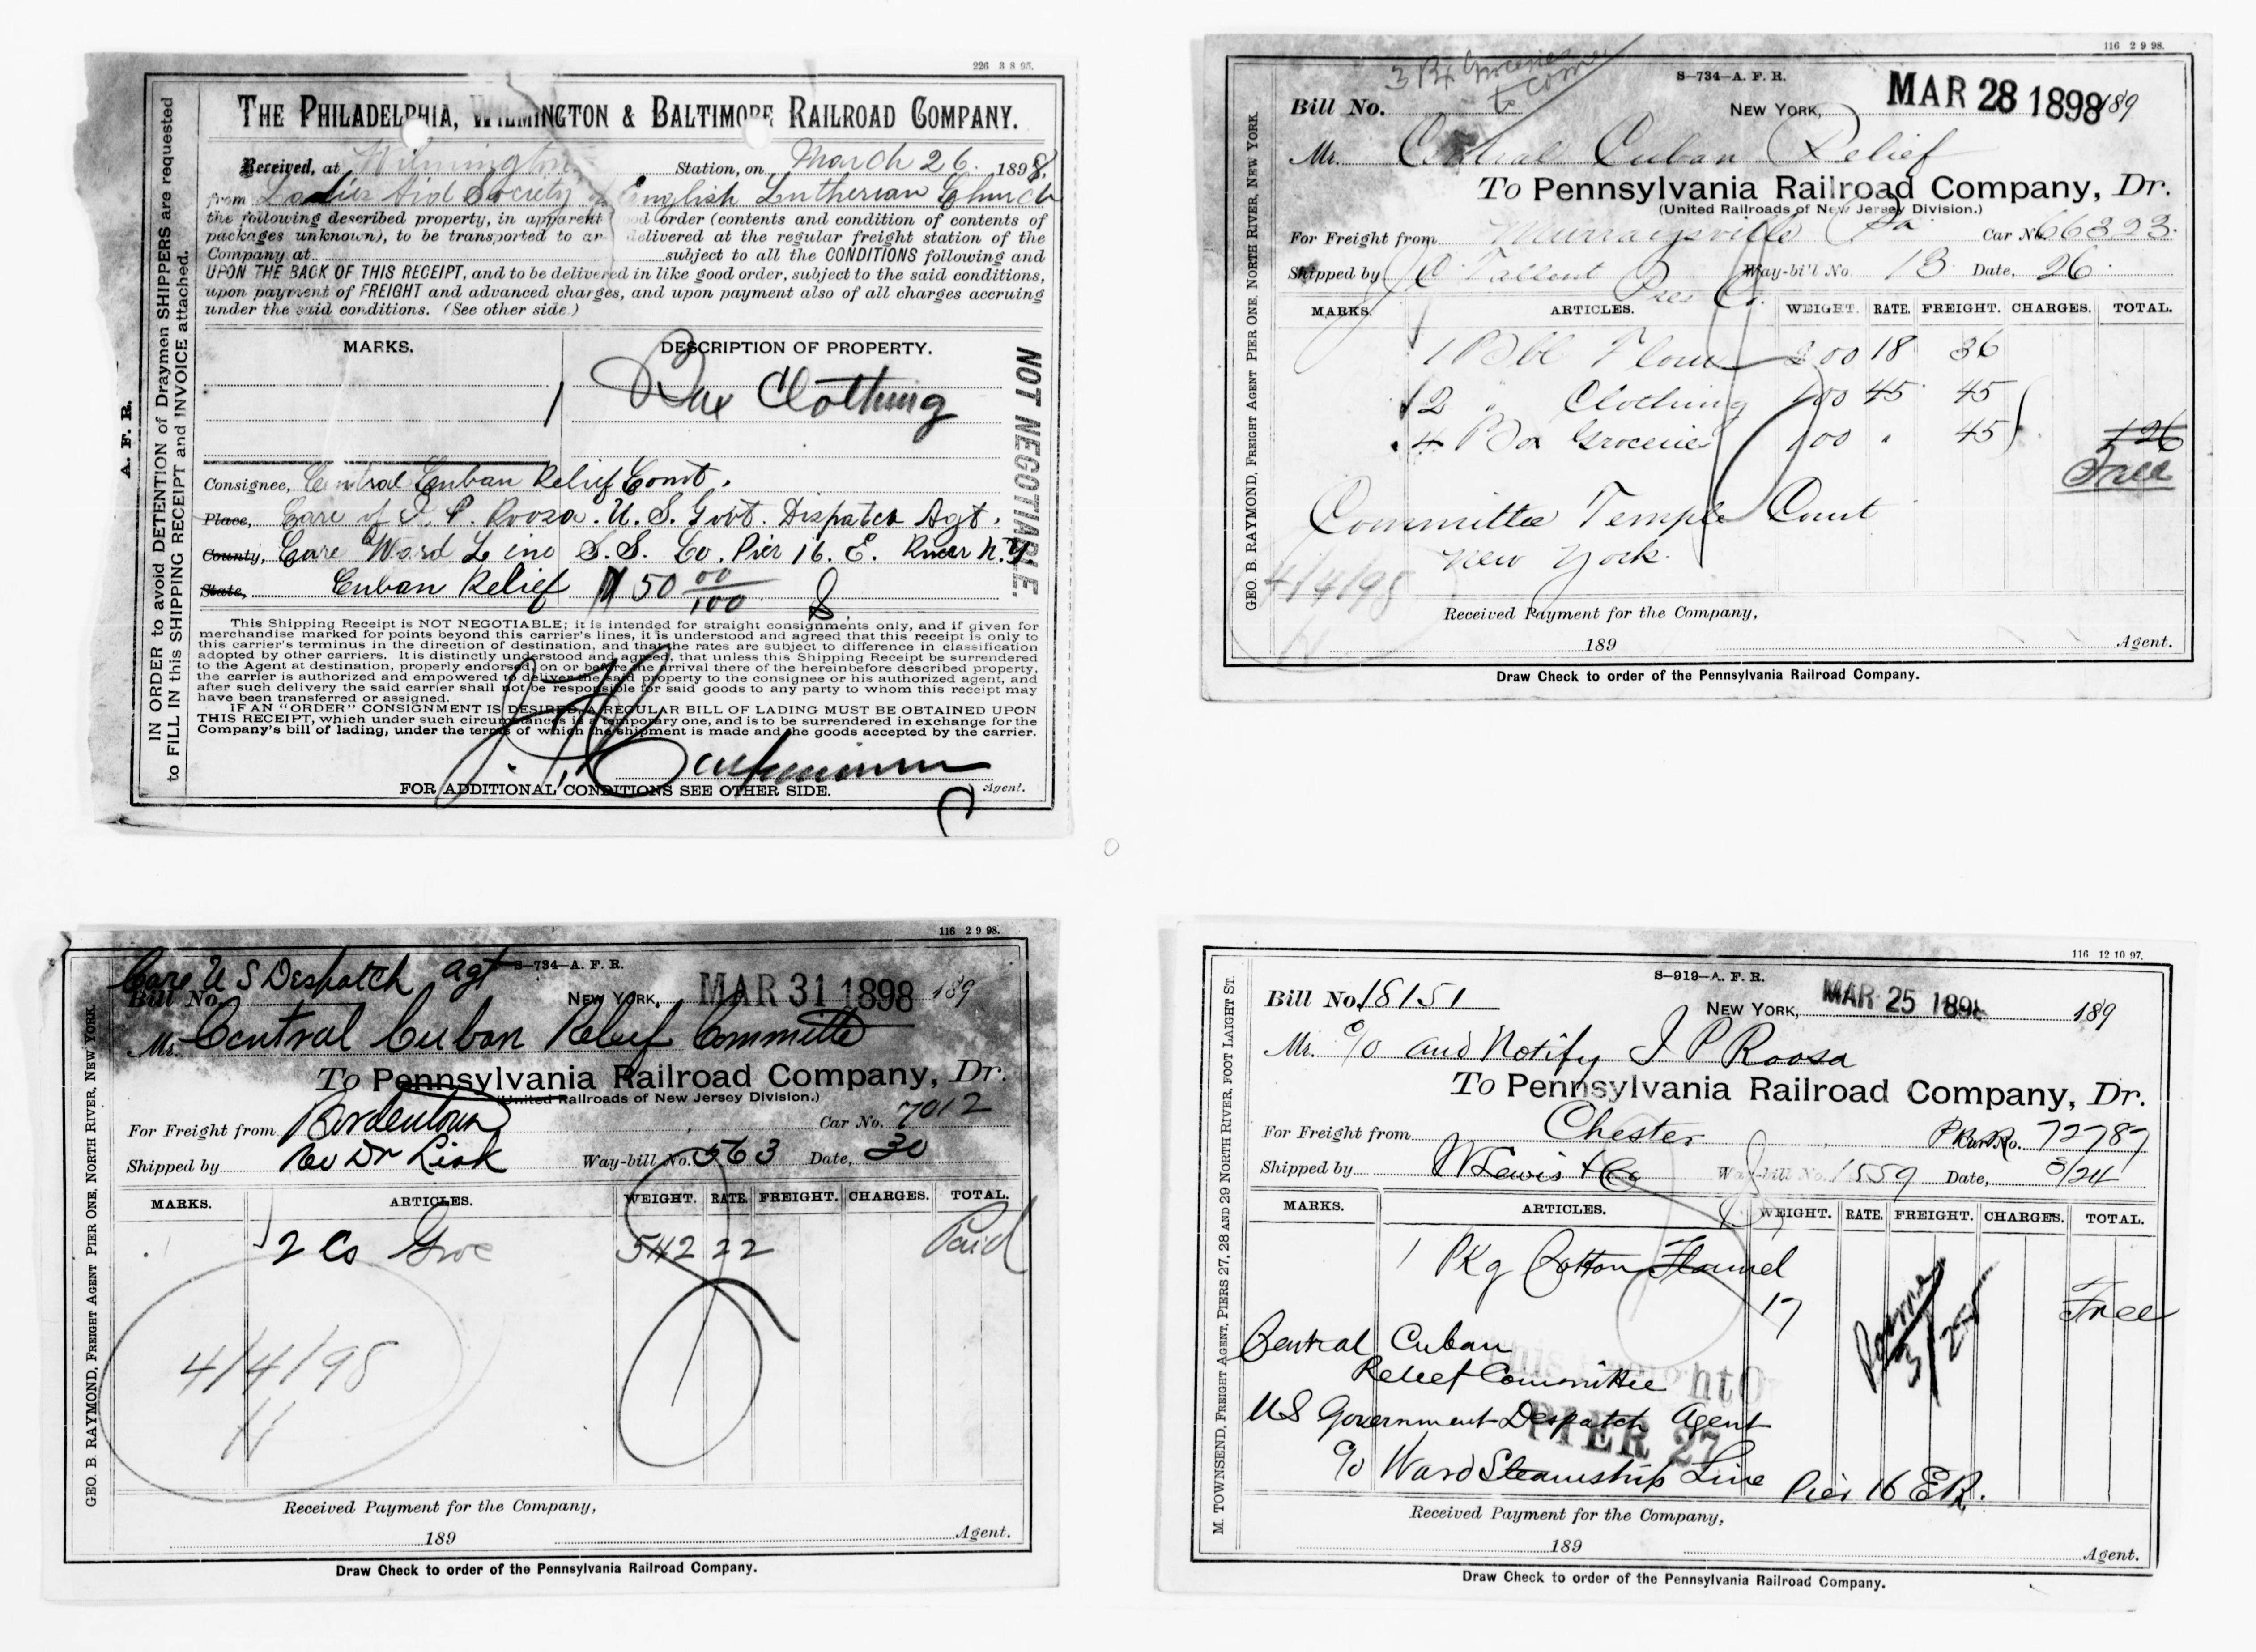 226 3 8 95.
THE PHILADELPHIA, WILMINGTON & BALTIMORE RAILROAD COMPANY.
Received, at Wilmington Station, on March 26. 1898,
from Ladies Aid Society of English Lutherian Church
the following described property, in apparent good order (contents and condition of contents of
packages unknown), to be transported to and delivered at the regular freight station of the
Company at subject to all the CONDITIONS following and
UPON THE BACK OF THIS RECEIPT, and to be delivered in like good order, subject to the said conditions,
upon payment of FREIGHT and advanced charges, and upon payment also of all charges accruing
under the said conditions. (See other side.)
MARKS. DESCRIPTION OF PROPERTY.
1 Box Clothing
Consignee, Central Cuban Relief Comt.
Place, Care of I. P. Roosa. U. S. Govt. Dispatch Agt.
County, Care Ward Line S. S. Co. Pier 16. E. River N.Y
State, Cuban Relief $ 50 00/100
This Shipping Receipt is NOT NEGOTIABLE; it is intended for straight consignments only, and if given for
merchandise marked for points beyond this carrier's lines, it is understood and agreed that this receipt is only to
this carrier's terminus in the direction of destination, and that the rates are subject to difference in classification
adopted by other carriers. It is distinctly understood and agreed, that unless this Shipping Receipt be surrendered
to the Agent at destination, properly endorsed, on or before the arrival there of the hereinbefore described property,
the carrier is authorized and empowered to deliver the said property to the consignee or his authorized agent, and
after such delivery the said carrier shall not be responsible for said goods to any party to whom this receipt may
have been transferred or assigned.
IF AN "ORDER" CONSIGNMENT IS DESIRED, A REGULAR BILL OF LADING MUST BE OBTAINED UPON
THIS RECEIPT, which under such circumstances is a temporary one, and is to be surrendered in exchange for the
Company's bill of lading, under the terms of which the shipment is made and the goods accepted by the carrier.
Agent.
FOR ADDITIONAL CONDITIONS SEE OTHER SIDE.
NOT NEGOTIABLE.
A. F. R.
IN ORDER to avoid DETENTION of Draymen SHIPPERS are requested
to FILL IN this SHIPPING RECEIPT and INVOICE attached.
116 2 9 98.
3 Bx Groceries
to come
S-734-A. F. R.
Bill No. NEW YORK, MAR 28 1898 189
Mr. Central Cuban Relief
To Pennsylvania Railroad Company, Dr.
(United Railroads of New Jersey Division.)
For Freight from Murraysville Pa Car No. 66323.
Shipped by Tallent Way-bill No. 13 Date, 26.
Pres
MARKS. ARTICLES. WEIGHT. RATE. FREIGHT. CHARGES. TOTAL.
1 Bbl Flour 200 18 36
2 " Clothing 100 45 45
4 Box Groceries 100 " 45 126
Free
Committee Temple Court
New York.
4/4/98
Received Payment for the Company,
189 Agent.
Draw Check to order of the Pennsylvania Railroad Company.
GEO. B. RAYMOND, FREIGHT AGENT PIER ONE, NORTH RIVER, NEW YORK.
116 2 9 98.
Care U S Despatch agt S-734-A. F. R.
Bill No. NEW YORK, MAR 31 1898 189
Mr. Central Cuban Relief Committe
To Pennsylvania Railroad Company, Dr.
(United Railroads of New Jersey Division.)
For Freight from Bordentown Car No. 7012
Shipped by Dr Lisk Way-bill No. 563 Date, 30
MARKS. ARTICLES. WEIGHT. RATE. FREIGHT. CHARGES. TOTAL.
2 Cs Groc 542 22 Paid
4/4/98
Received Payment for the Company,
189 Agent.
Draw Check to order of the Pennsylvania Railroad Company.
GEO. B. RAYMOND, FREIGHT AGENT PIER ONE, NORTH RIVER, NEW YORK.
116 12 10 97.
S-919-A. F. R.
Bill No. 18151 NEW YORK, MAR 25 1898 189
Mr. c/o and Notify I P Roosa
To Pennsylvania Railroad Company, Dr.
For Freight from Chester PRR Car No. 72787
Shipped by Lewis & Co Way-bill No. 1559 Date, 3/24
MARKS. ARTICLES. WEIGHT. RATE. FREIGHT. CHARGES. TOTAL.
1 Pkg Cotton Flannel
17 Free
3/25
Central Cuban
Relief Committee
US Government Despatch Agent
PIER 27
c/o Ward Steamship Line Pier 16 ER.
Received Payment for the Company,
189 Agent.
Draw Check to order of the Pennsylvania Railroad Company.
M. TOWNSEND, FREIGHT AGENT, PIERS 27, 28 AND 29 NORTH RIVER, FOOT LAIGHT ST.